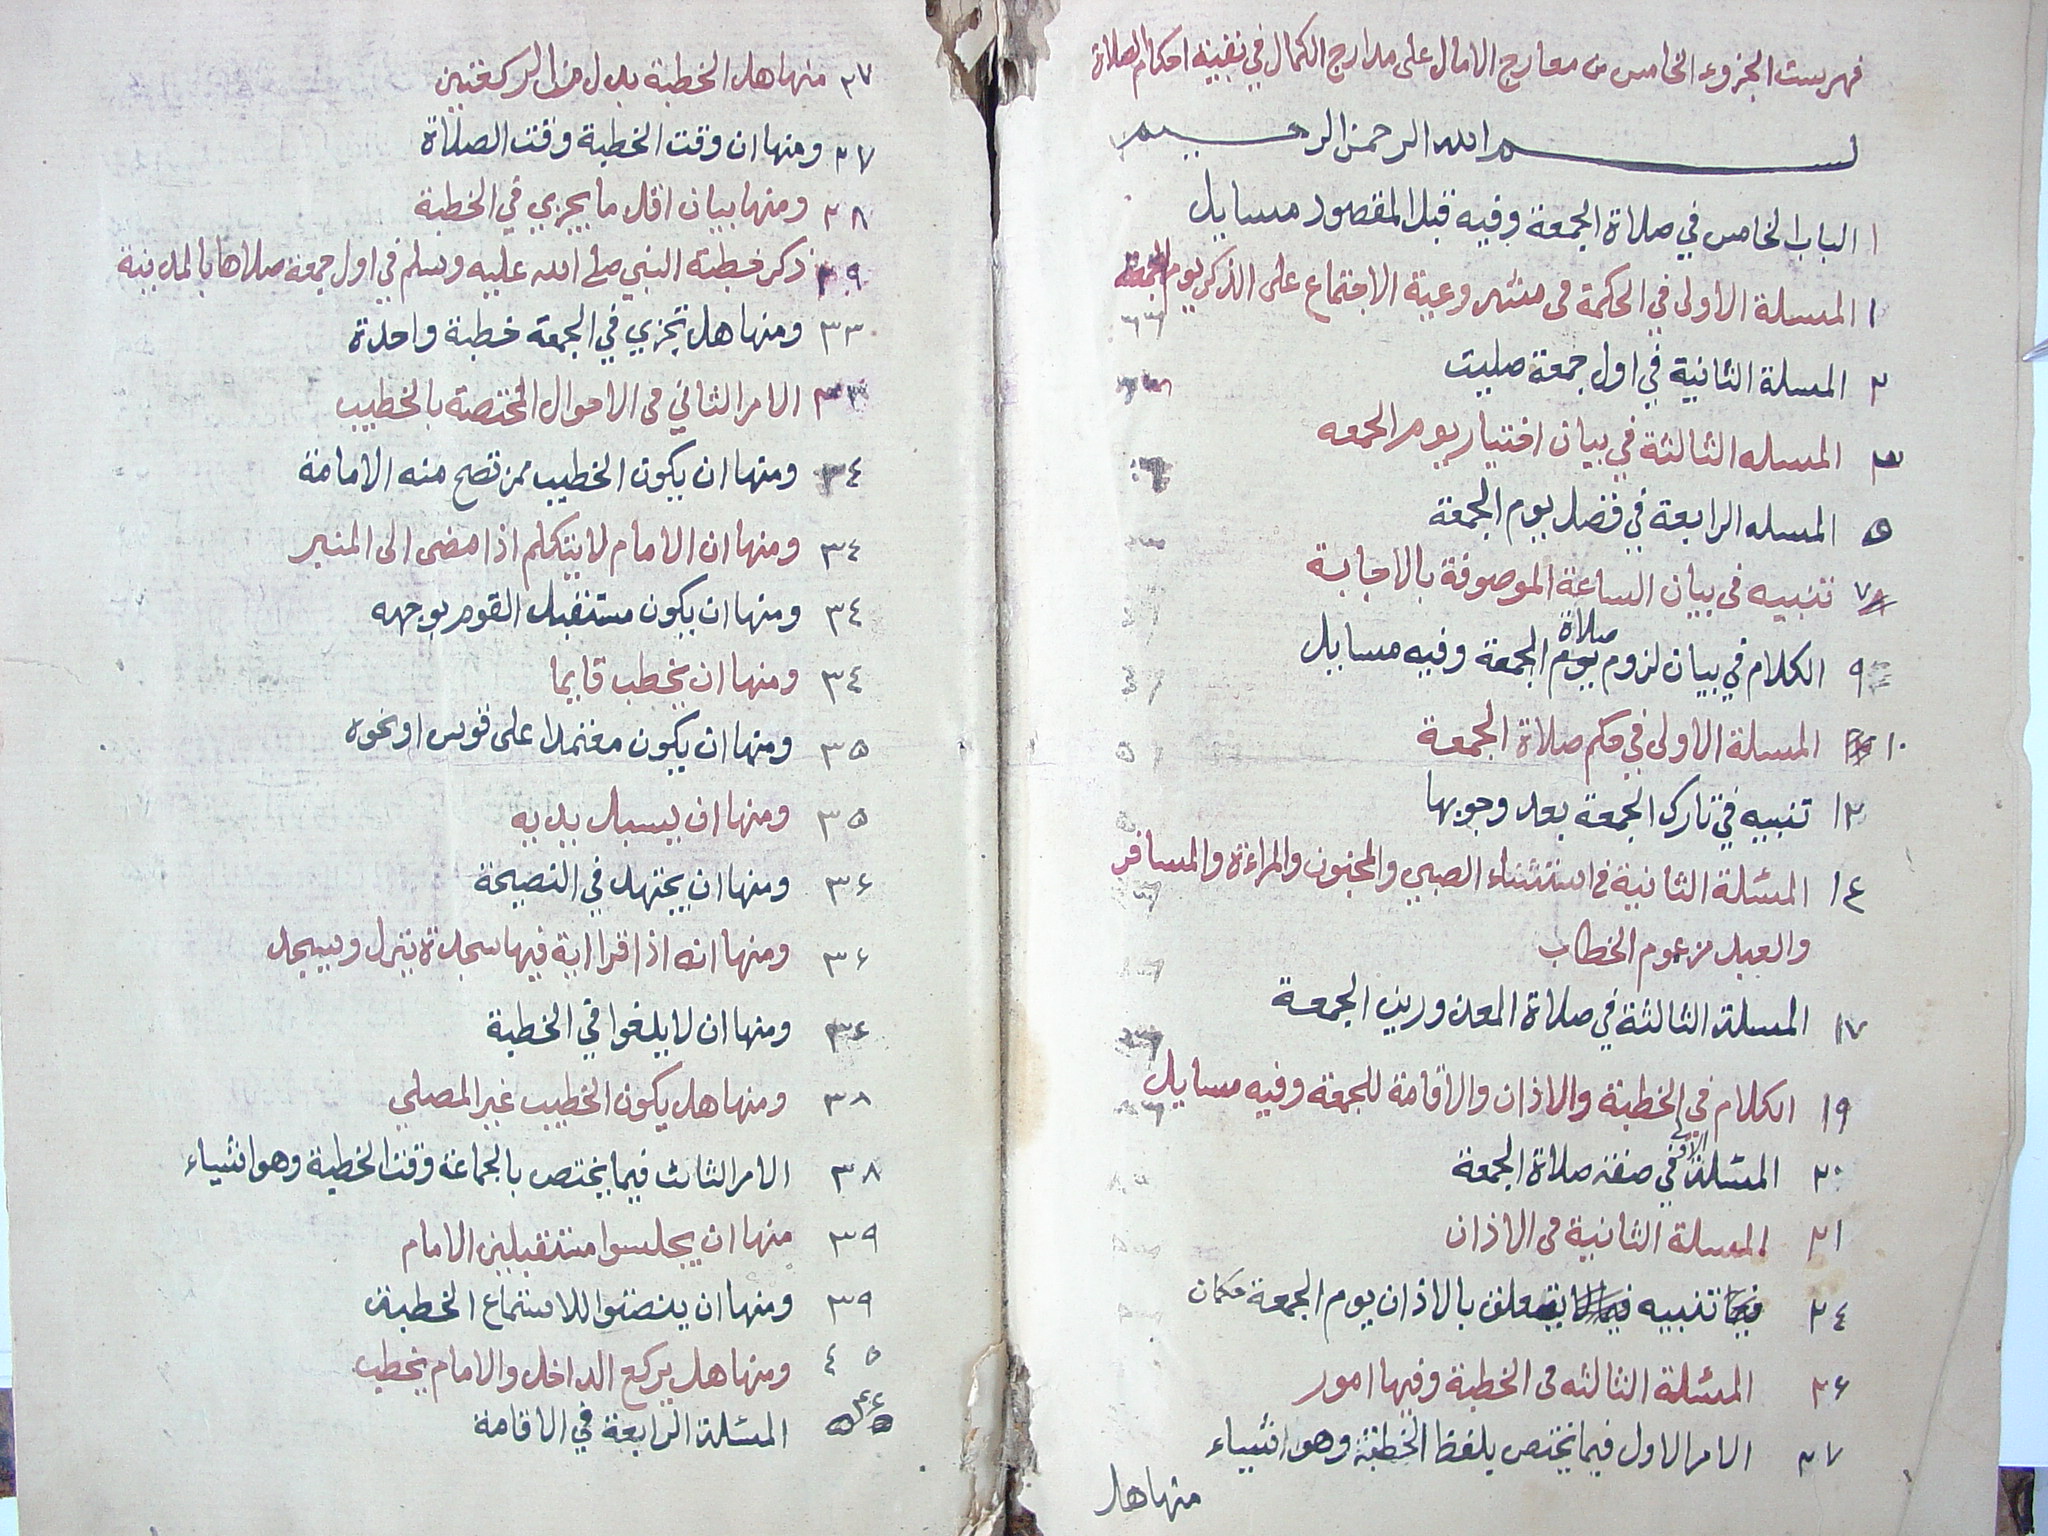 فهرست الجزوء الخامس من معارج الامال على مدارج الكمال في بقية احكام الصلاة
بسم الله الرحمن الرحيم
١ الباب الخامس في صلاة الجمعة وفيه قبل المقصود مسايل
١ المسلة الأولى في الحكمة في مشروعية الاجتماع على الذكر يوم الجمعة
٢ المسلة الثانية في اول جمعة صليت
٣ المسله الثالثة في بيان اختيار يوم الجمعه
٥ المسله الرابعة في فضل يوم الجمعة
٧ تنبيه في بيان الساعة الموصوفة بالاجابة
٩ الكلام في بيان لزوم صلاة يوم الجمعة وفيه مسايل
١٠ المسلة الاولى في حكم صلاة الجمعة
١٣ تنبيه في تارك الجمعة بعد وجوبها
١٤ المسئلة الثانية في استثناء الصبي والمجنون والمراءة والمسافر
والعبد من عموم الخطاب
١٧ المسلة الثالثة في صلاة المعذورين الجمعة
١٩ الكلام في الخطبة والاذان والاقامة للجمعة وفيه مسايل
٢٠ المسئلة الاولى في صفة صلاة الجمعة
٢١ المسلة الثانية في الاذان
٢٤ تنبيه يتعلق بالاذان يوم الجمعة حكمان
٢٦ المسئلة الثالثه في الخطبة وفيها امور
٢٧ الامر الاول فيما يختص بلفظ الخطبة وهو اشياء
منها هل
٢٧ منها هل الخطبة بدل من الركعتين
٢٧ ومنها ان وقت الخطبة وقت الصلاة
٢٨ ومنها بيان اقل ما يجزي في الخطبة
٢٩ ذكر خطبة النبي صلى الله عليه وسلم في اول جمعة صلاها بالمدينة
٣٣ ومنها هل تجزي في الجمعة خطبة واحدة
٣٣ الامر الثاني في الاحوال المختصة بالخطيب
٣٤ ومنها ان يكون الخطيب ممن تصح منه الامامة
٣٤ ومنها ان الامام لا يتكلم اذا مضى الى المنبر
٣٤ ومنها ان يكون مستقبل القوم بوجهه
٣٤ ومنها ان يخطب قايما
٣٥ ومنها ان يكون معتمدا على قوس او نحوه
٣٥ ومنها ان يسبل يديه
٣٦ ومنها ان يجتهد في النصيحة
٣٦ ومنها انه اذا قرا اية فيها سجدة ينزل ويسجد
٣٦ ومنها ان لا يلغوا في الخطبة
٣٨ ومنها هل يكون الخطيب غير المصلي
٣٨ الامر الثالث فيما يختص بالجماعة وقت الخطبة وهو اشياء
٣٩ منها ان يجلسوا مستقبلين الامام
٣٩ ومنها ان ينصتوا للاستماع الخطبة
٤٥ ومنها هل يركع الداخل والامام يخطب
٤٦ المسئلة الرابعة في الاقامة